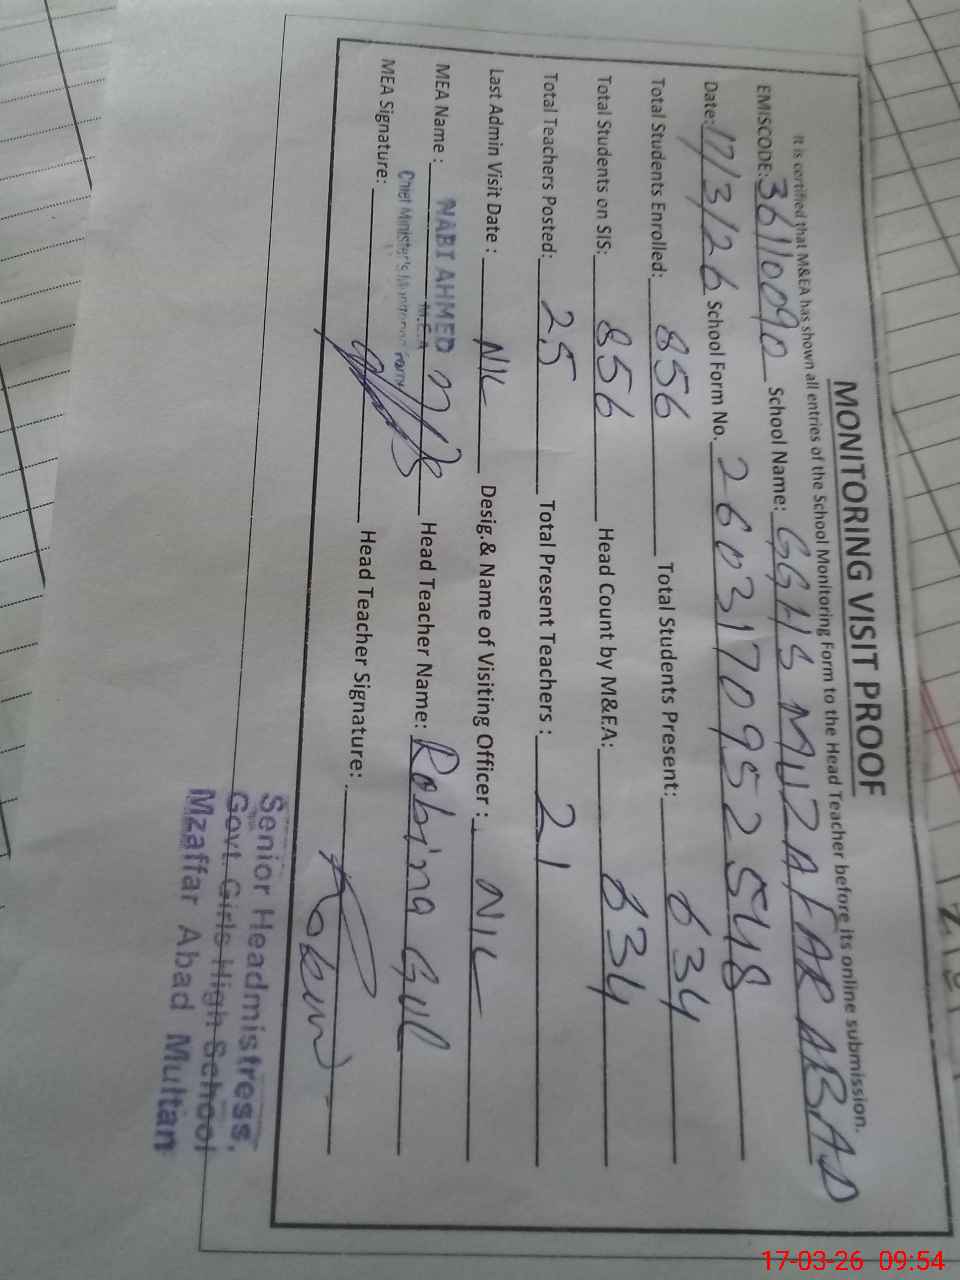 MONITORING VISIT PROOF
It is certified that M&EA has shown all entries of the School Monitoring Form to the Head Teacher before its online submission.
EMISCODE: 36110090 School Name: GGHS MUZAFAR ABAD
Date: 17/3/26 School Form No. 2603170952548
Total Students Enrolled: 856 Total Students Present: 634
Total Students on SIS: 856 Head Count by M&EA: 634
Total Teachers Posted: 25 Total Present Teachers : 21
Last Admin Visit Date : NIL Desig.& Name of Visiting Officer : NIL
MEA Name : NABI AHMED Head Teacher Name: Robina Gul
M.E.A
Chief Minister's Monitoring Force
MEA Signature: Head Teacher Signature:
Senior Headmistress,
Govt. Girls High School
Mzaffar Abad Multan
17-03-26 09:54